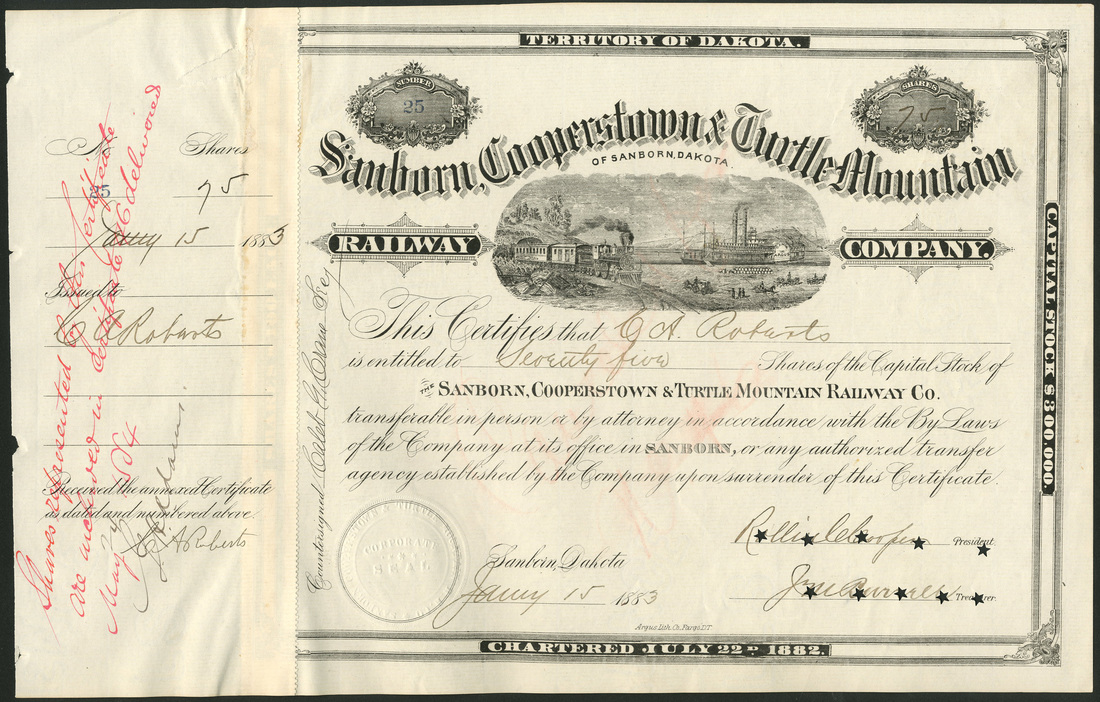 TERRITORY OF DAKOTA.
NUMBER
25
SHARES
75
Sanborn, Cooperstown & Turtle Mountain
OF SANBORN, DAKOTA.
RAILWAY
COMPANY.
This Certifies that C A. Roberts
is entitled to Seventy five Shares of the Capital Stock of
THE SANBORN, COOPERSTOWN & TURTLE MOUNTAIN RAILWAY CO.
transferable in person or by attorney in accordance with the By Laws
of the Company at its office in SANBORN, or any authorized transfer
agency established by the Company upon surrender of this Certificate.
CORPORATE
SEAL
Sanborn, Dakota
Jany 15 1883
Rollin C Cooper President.
Treasurer.
Argus Lith. Co. Fargo D.T.
CHARTERED JULY 22D 1882.
CAPITAL STOCK $800.000.
Countersigned
No. Shares
25 75
Jany 15 1883
Issued to
C A Roberts
Received the annexed Certificate
as dated and numbered above.
C. A Roberts
Shares represented by this Certificate
are included in certificate delivered
May